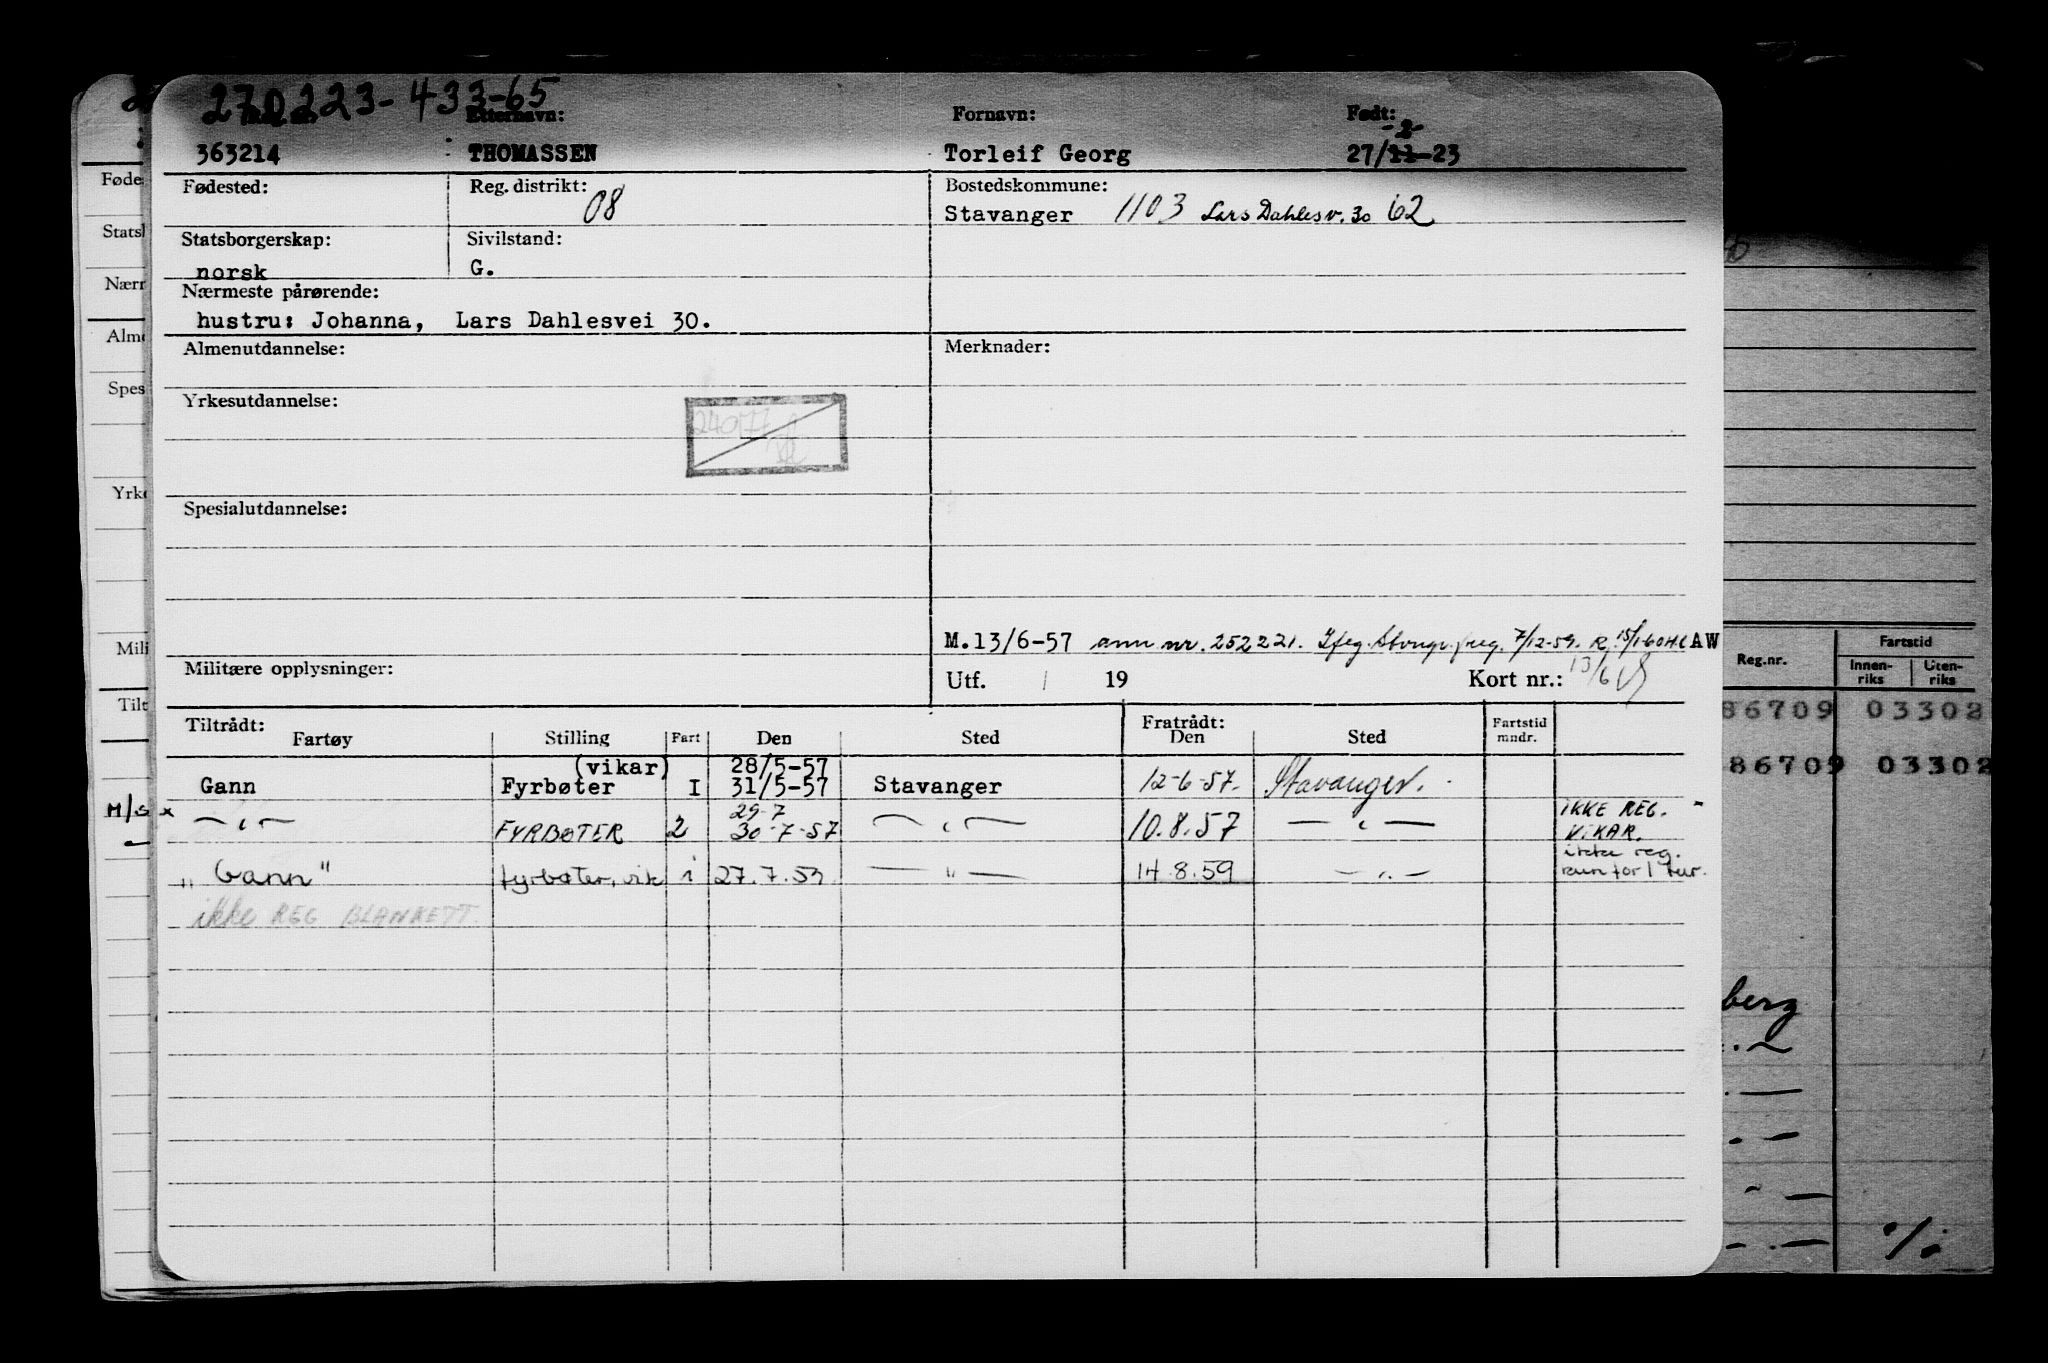 270223-433-65
Etternavn: Fornavn: Født:
-2-
363214 THOMASSEN Torleif Georg 27/11-23
Fødested: Reg. distrikt: 08 Bostedskommune:
Stavanger 1103 Lars Dahlesv. 30 62
Statsborgerskap: Sivilstand:
norsk G.
Nærmeste pårørende:
hustru: Johanna, Lars Dahlesvei 30.
Almenutdannelse: Merknader:
Yrkesutdannelse:
240177
Spesialutdannelse:
M.13/6-57 ann nr. 252221. 7/12-59. R. 15/1-60 AW
Militære opplysninger:
Utf. / 19 Kort nr.: 13/6
Tiltrådt: Fratrådt:
Fartøy Stilling Fart Den Sted Den Sted Fartstid mndr.
(vikar) 28/5-57
Gann Fyrbøter I 31/5-57 Stavanger 12-6-57. Stavanger.
29-7
— " — FYRBØTER 2 30-7-57 — " — 10.8.57 — " — IKKE REG.
VIKAR.
"Gann" fyrbøter, vik i 27.7.59 — " — 14.8.59 — " — ikke reg.
kun for 1 tur.
ikke REG BLANKETT.
Føde
Stats
Nærr
Alme
Spes
Yrke
Mili
Tilt
M/S
Reg.nr. Fartstid
Innen-riks Uten-riks
86709 03302
86709 03302
berg